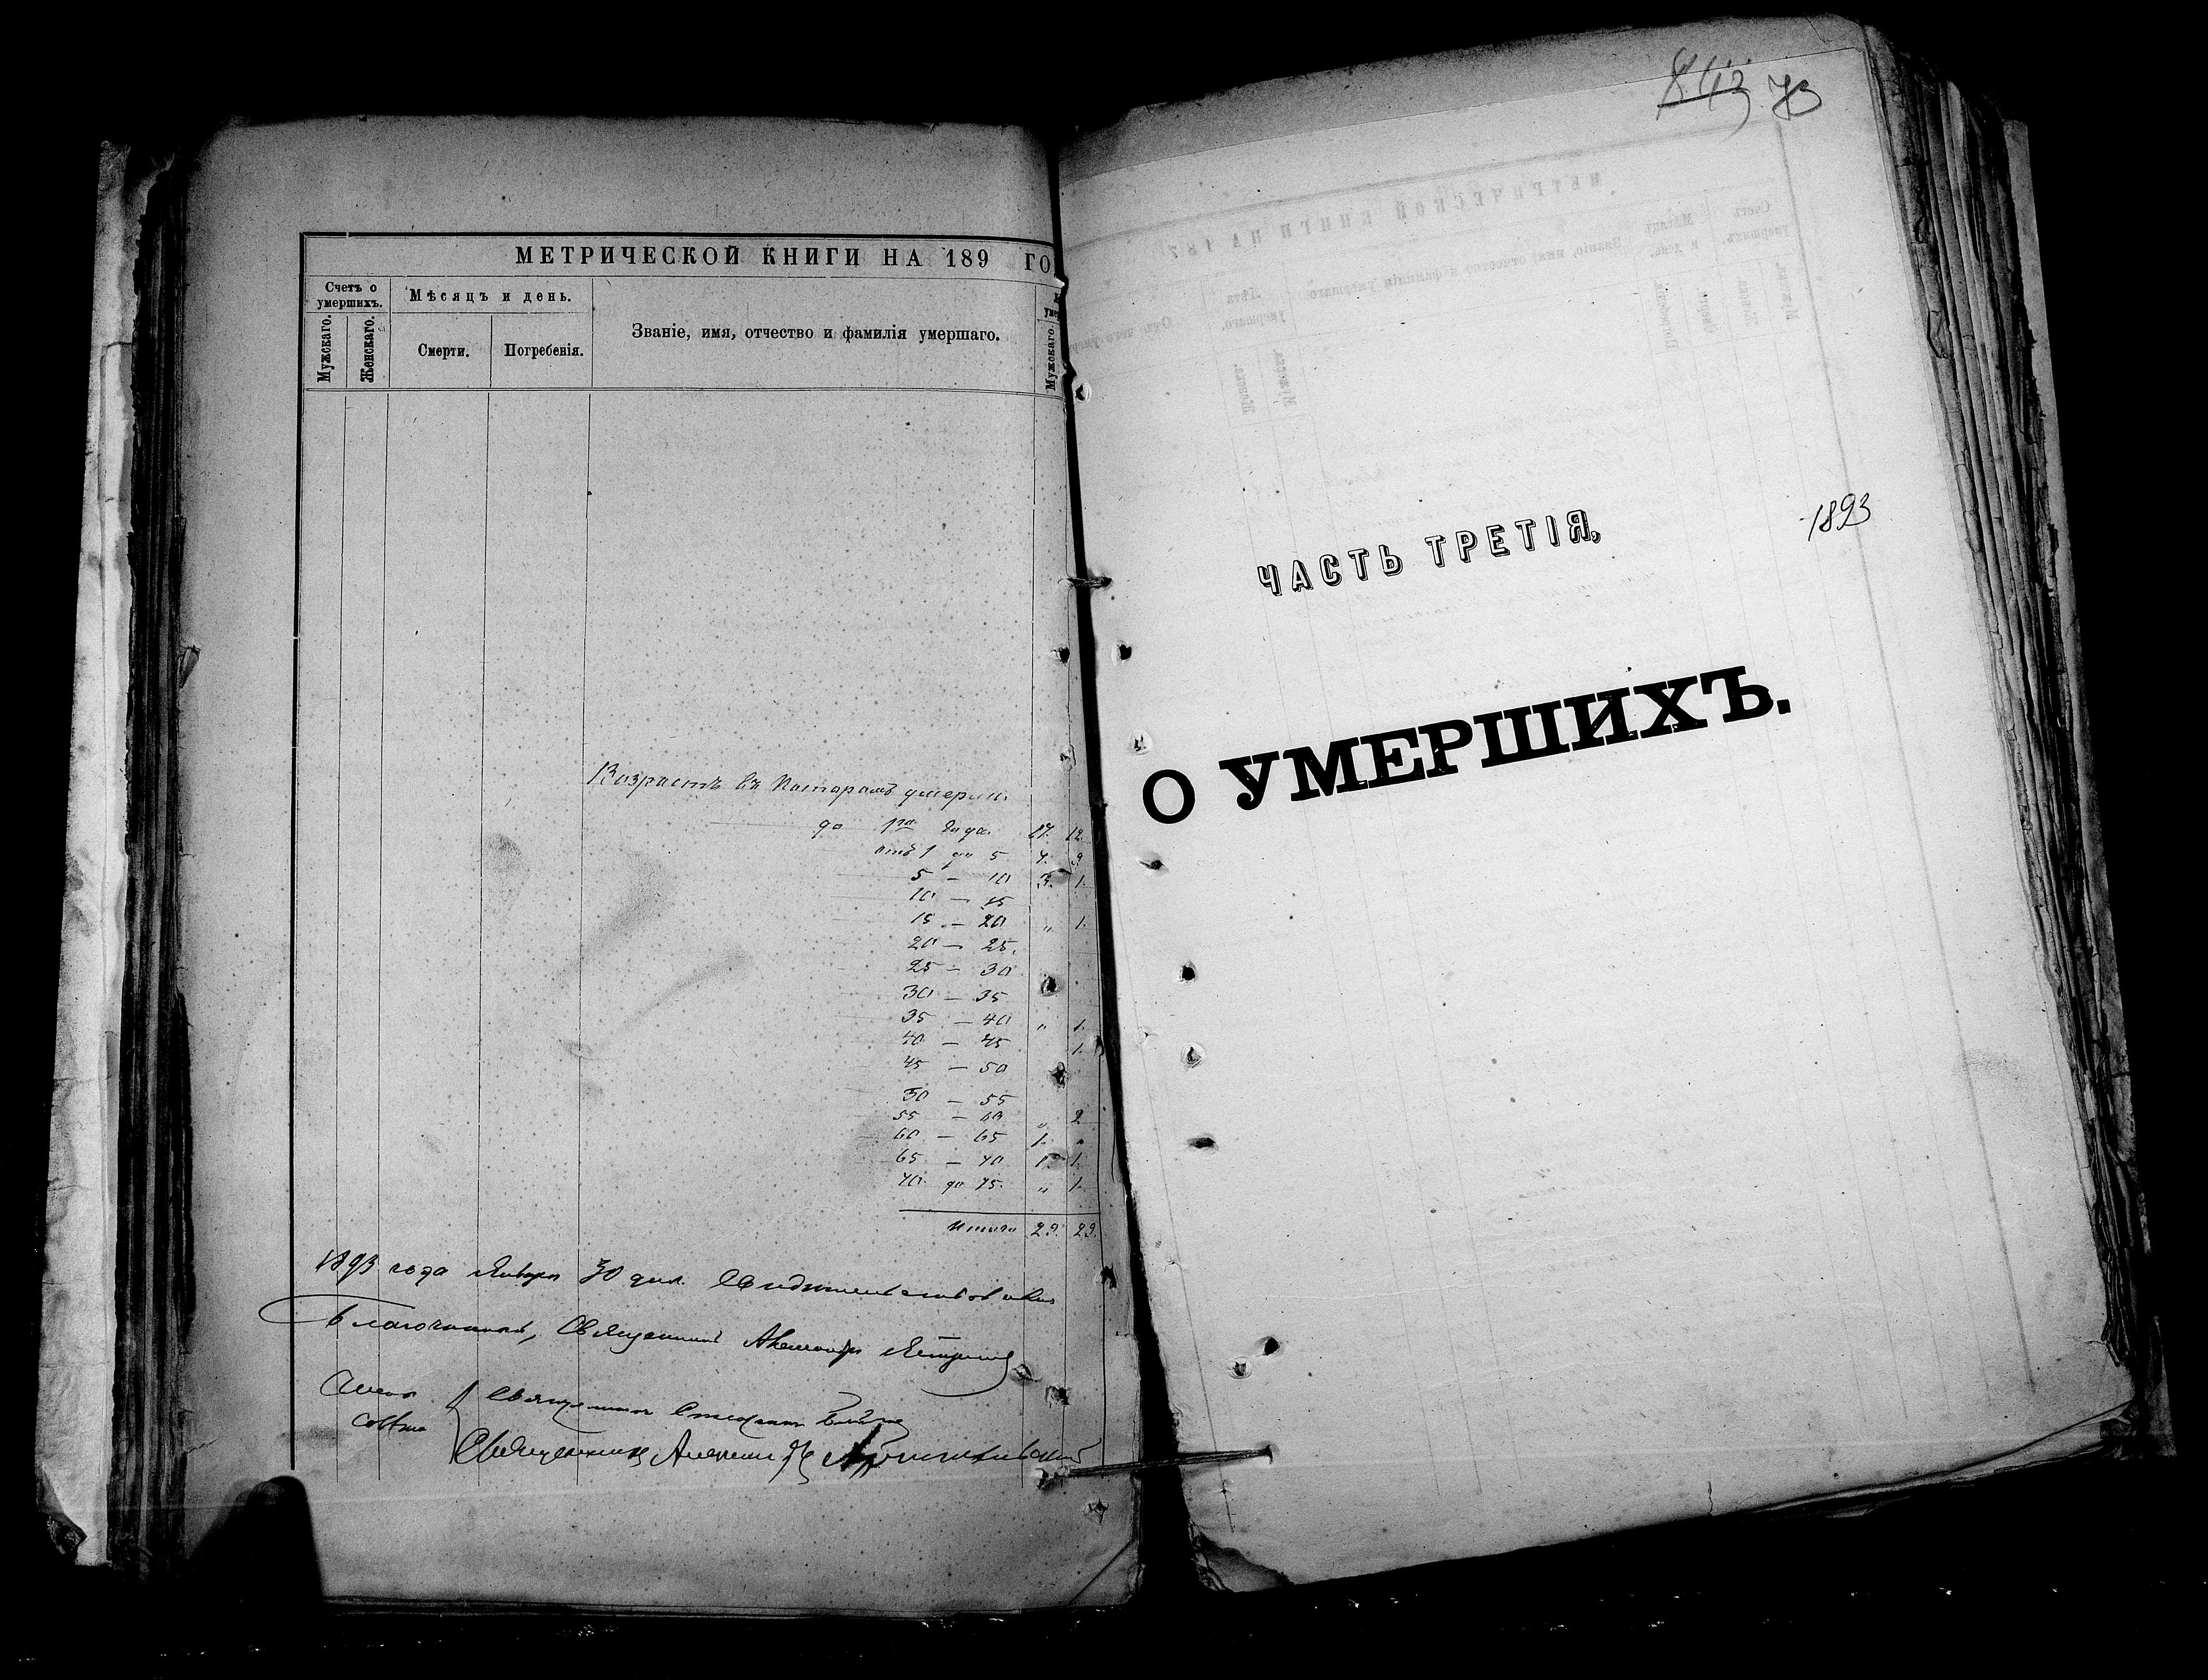 МЕТРИЧЕСКОЙ КНИГИ НА 189 ГО
Счетъ о умершихъ.
Мѣсяцъ и день.
Званіе, имя, отчество и фамилія умершаго.
Мужскаго.
Женскаго.
Смерти.
Погребенія.
Мужскаго.
Возрастъ въ которомъ умерли.
до 1го года. 17. 12.
отъ 1 до 5 7. 9
5 — 10 3. 1.
10 — 15
15 — 20 „ 1.
20 — 25.
25 — 30
30 — 35
35 — 40 „ 1.
40 — 45 1.
45 — 50
50 — 55
55 — 60 „ 2
60 — 65 1. „
65 — 70 1. 1.
70 до 75. „ 1.
Итого 29. 29.
1893 года Января 30 дня Свидѣтельствовалъ
Благочинный, Священникъ Александръ
Члены совѣта
Священникъ
Священникъ
843 73
1893
ЧАСТЬ ТРЕТІЯ,
О УМЕРШИХЪ.